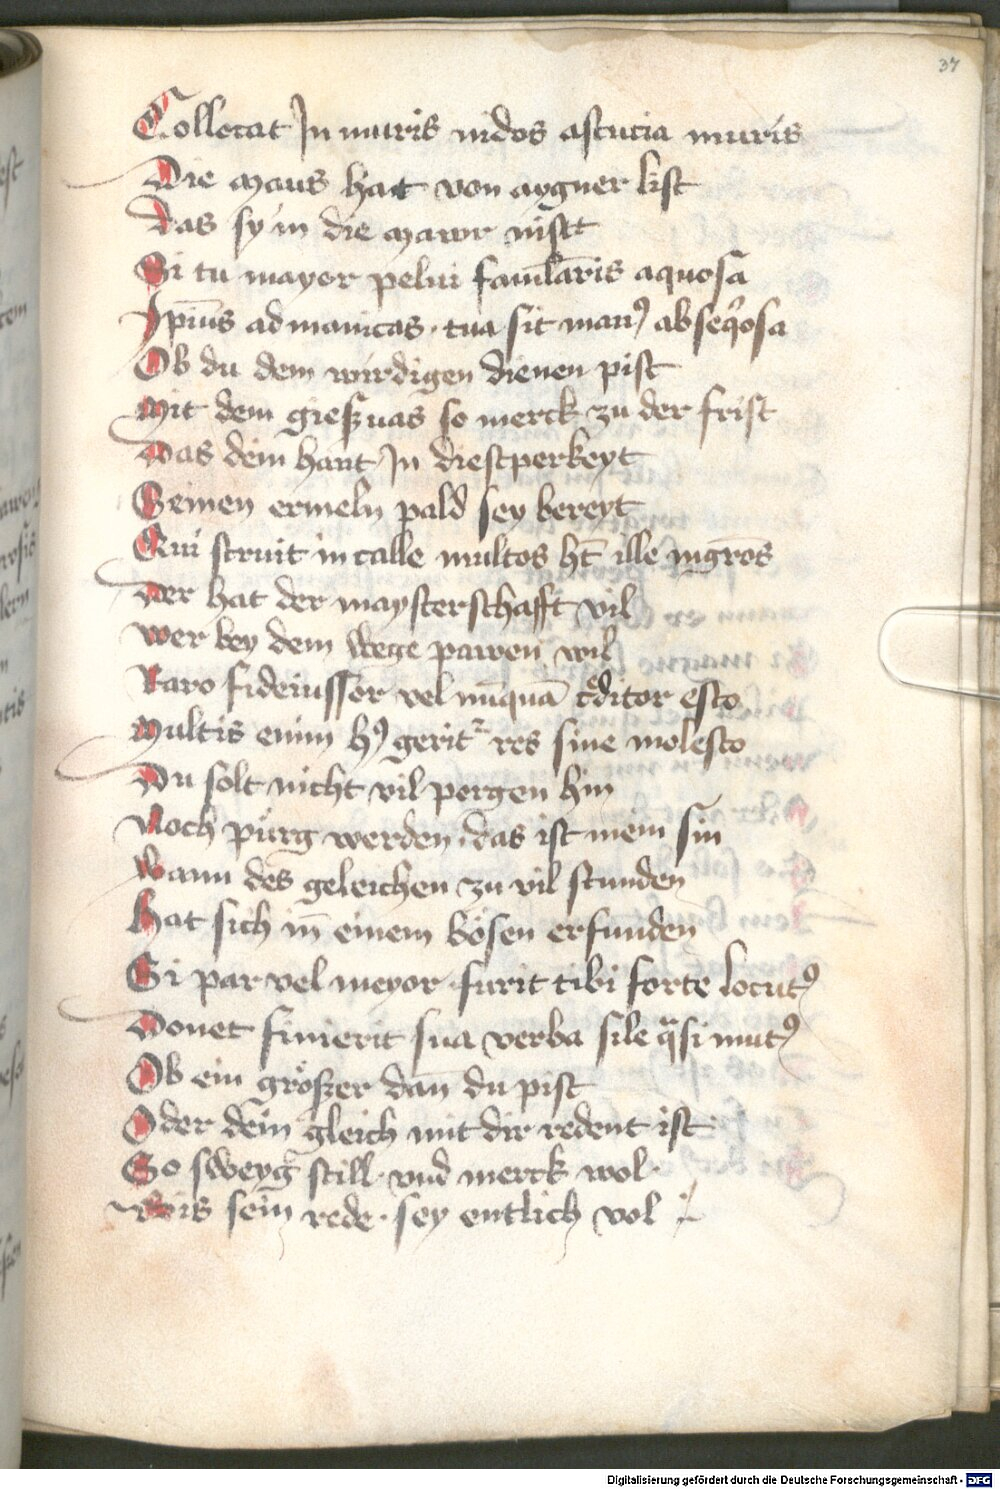 37
Collocat In muris nidos astucia muris
Die maus hat von aygner list
das sy in die mawr nist
Si tu mayor pelui famĩlaris aquosa
Ip̃ius ad manicas · tua sit manꝰ abseq̃osa
Ob du dem wirdigen dienen pist
Mit dem gieszuas so merck zu der frist
Das dein hant In diestperkeyt
Seinen ermeln pald sey bereyt
Qui struit in calle multos ht̃ ille mgr̃os
Der hat der maysterschafft vil
Wer bey dem wege pawen wil
Raro fideiussor vel nũquã c̃ditor esto
Multis enim hꝰ gerit᷑ res sine molesto
Du solt nicht vil porgen hin
Noch pürg werden · das ist mein sin
Wann des geleichen zu vil stunden
Hat sich in̄ einem bösen erfunden
Si par vel meyor · furit tibi forte locutꝰ
Donet finierit sua verba sile q̃si mutꝰ
Ob ein gröszer dan̄ du pist
Oder dein gleich mit dir redent ist
So sweyg still · vnd merck wol ·
Bis sein rede · sey entlich vol
Digitalisierung gefördert durch die Deutsche Forschungsgemeinschaft - DFG